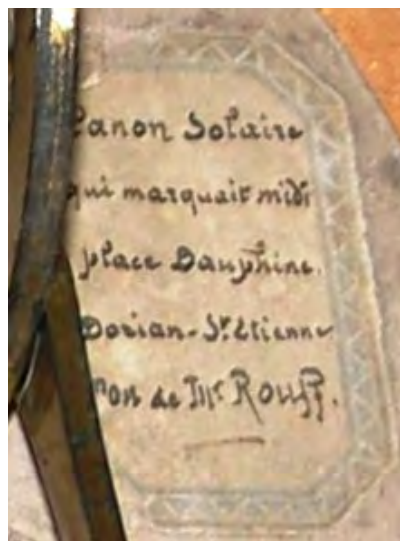 Canon Solaire
qui marquait midi
place Dauphine.
Dorian - St Etienne
Don de Mr